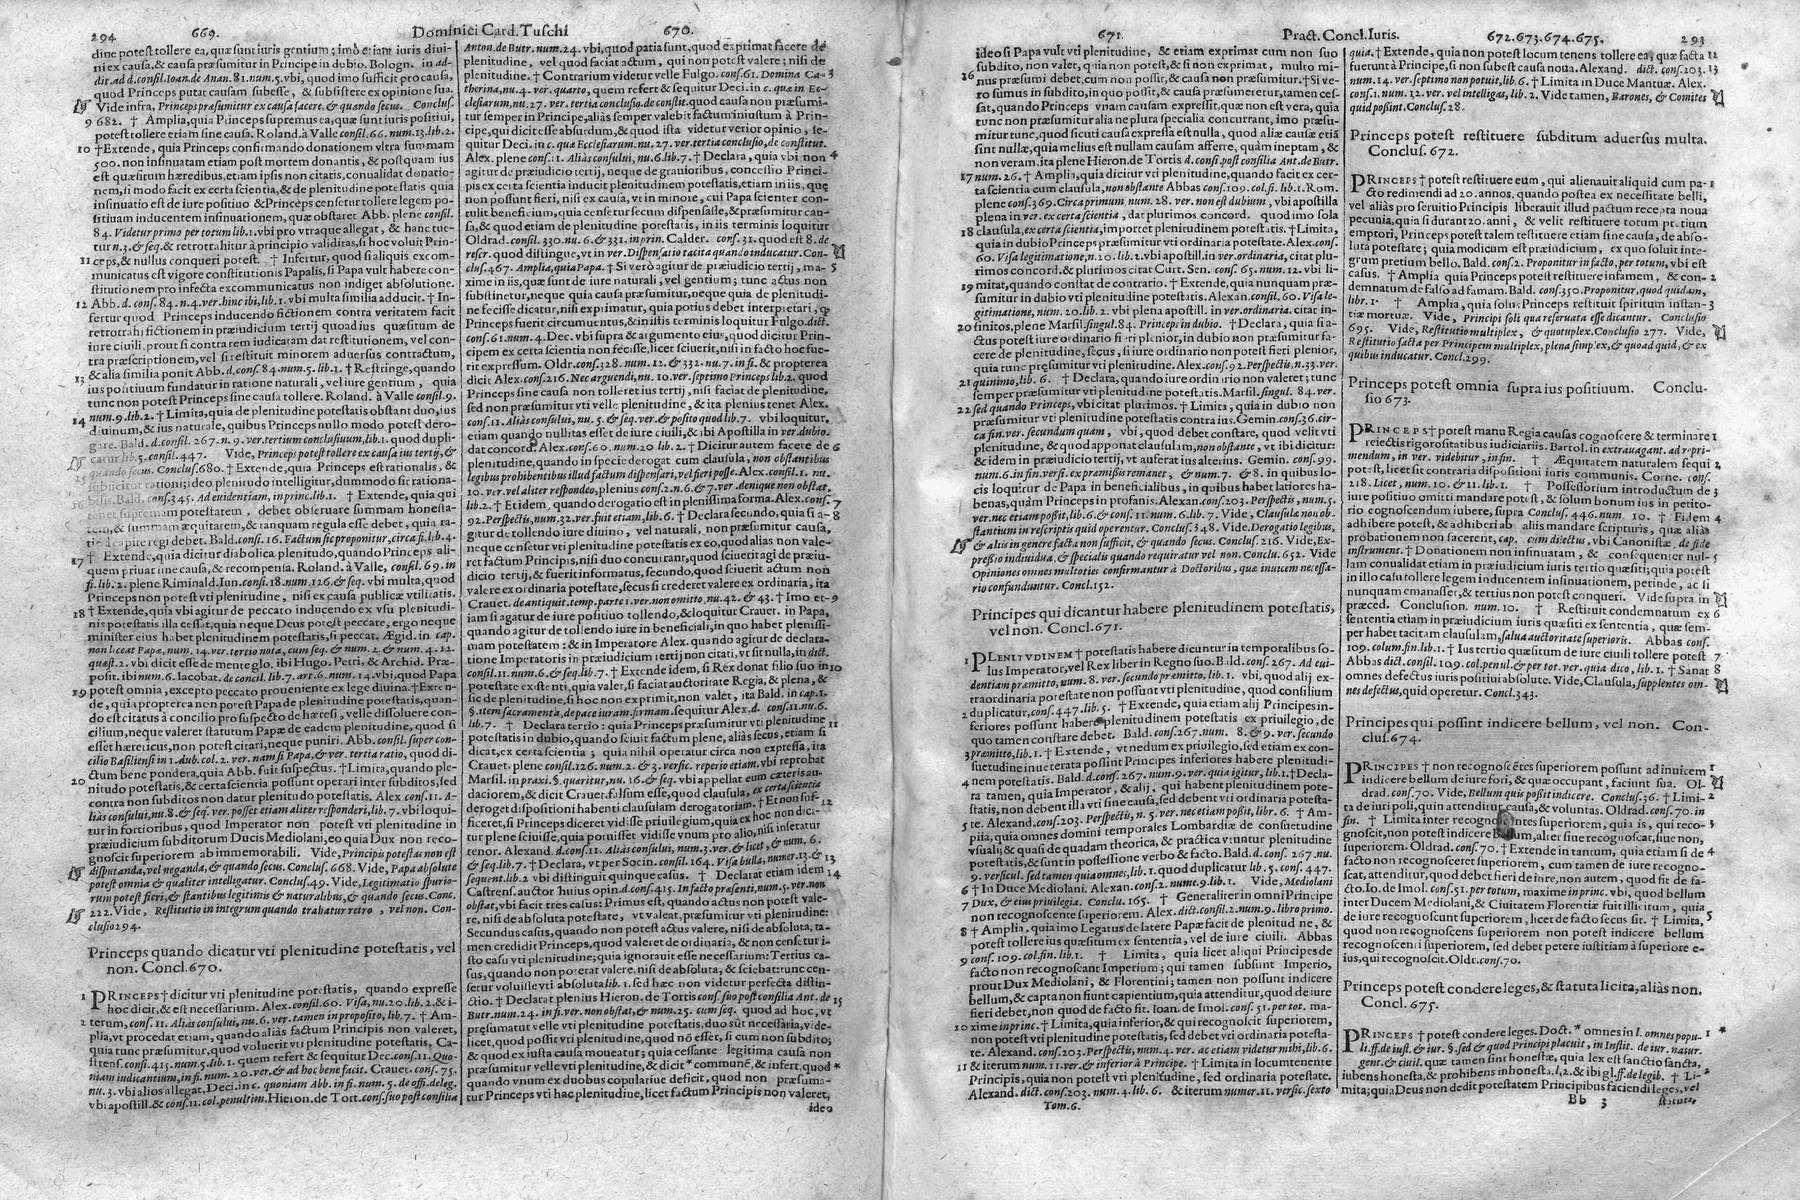 294 669. Dominici Card. Tuschi 670.
dine potest tollere ea, quæ sunt iuris gentium; imò etiam iuris diui-
ni ex causa, & causa præsumitur in Principe in dubio. Bologn. in ad-
dit. ad d. consil. Ioan. de Anan. 81. num. 5. vbi, quod imo sufficit pro causa,
quod Princeps putat causam subesse, & subsistere ex opinione sua.
Vide infra, Princeps præsumitur ex causa facere, & quando secus. Conclus.
9 682. † Amplia, quia Princeps supremus ea, quæ sunt iuris positiui,
potest tollere etiam sine causa. Roland. à Valle consil. 66. num. 13. lib. 2.
10 †Extende, quia Princeps confirmando donationem vltra summam
500. non insinuatam etiam post mortem donantis, & postquam ius
est quæsitum hæredibus, etiam ipsis non citatis, conualidat donatio-
nem, si modo facit ex certa scientia, & de plenitudine potestatis quia
insinuatio est de iure positiuo & Princeps censetur tollere legem po-
sitiuam inducentem insinuationem, quæ obstaret Abb. plene consil.
84. Videtur primo per totum lib. 1. vbi pro vtraque allegat, & hanc tue-
tur n. 3. & seq. & retrotrahitur à principio validitas, si hoc voluit Prin-
11 ceps, & nullus conqueri potest. † Infertur, quod si aliquis excom-
municatus est vigore constitutionis Papalis, si Papa vult habere con-
stitutionem pro infecta excommunicatus non indiget absolutione.
12 Abb. d. cons. 84. n. 4. ver. hinc ibi, lib. 1. vbi multa similia adducit. † In-
fertur quod Princeps inducendo fictionem contra veritatem facit
retrotrahi fictionem in præiudicium tertij quoad ius quæsitum de
iure ciuili, prout si contra rem iudicaram dat restitutionem, vel con-
tra præscriptionem, vel si restituit minorem aduersus contractum,
& alia similia ponit Abb. d. cons. 84. num. 5. lib. 1. † Restringe, quando
13 ius positiuum fundatur in ratione naturali, vel iure gentium, quia
tunc non potest Princeps sine causa tollere. Roland. à Valle consil. 9.
num. 9. lib. 2. † Limita, quia de plenitudine potestatis obstant duo, ius
14 diuinum, & ius naturale, quibus Princeps nullo modo potest dero-
gare. Bald. d. consil. 267. n. 9. ver. tertium conclusiuum, lib. 1. quod dupli-
catur lib. 5. consil. 447. Vide, Princeps potest tollere ex causa ius tertij, &
quando secus. Conclus. 680. † Extende, quia Princeps est rationalis, &
subijcitur rationi; ideo plenitudo intelligitur, dummodo sit rationa-
bilis. Bald. cons. 345. Ad euidentiam, in princ. lib. 1. † Extende, quia qui
habet supremam potestatem, debet obseruare summam honesta-
tem, & summam æquitatem, & tanquam regula esse debet, quia ra-
tio in capite regi debet. Bald. cons. 16. Factum sic proponitur, circa fi. lib. 4.
17 † Extende, quia dicitur diabolica plenitudo, quando Princeps ali-
quem priuat sine causa, & recompensa. Roland. à Valle, consil. 69. in
fi. lib. 2. plene Riminald. Iun. cons. 18. num. 126. & seq. vbi multa, quod
Princeps non potest vti plenitudine, nisi ex causa publicæ vtilitatis.
18 † Extende, quia vbi agitur de peccato inducendo ex vsu plenitudi-
nis potestatis illa cessat, quia neque Deus potest peccare, ergo neque
minister eius habet plenitudinem potestatis, si peccat. Ægid. in cap.
non liceat Papæ, num. 14. ver. tertio nota, cum seq. & num. 2. & num. 4. 12.
quæst. 2. vbi dicit esse de mente glo. ibi Hugo. Petri, & Archid. Præ-
posit. ibi num. 6. Iacobat. de concil. lib. 7. art. 6. num. 14. vbi, quod Papa
19 potest omnia, excepto peccato proueniente ex lege diuina. †Exten-
de, quia propterea non potest Papa de plenitudine potestatis, quan-
do est citatus à concilio pro suspecto de hæresi, velle dissoluere con-
cilium, neque valeret statutum Papæ de eadem plenitudine, quod si
esset hæreticus, non potest citari, neque puniri. Abb. consil. super con-
cilio Basiliensi in 1. dub. col. 2. ver. nam si Papa, & ver. tertia ratio, quod di-
ctum bene pondera, quia Abb. fuit suspectus. †Limita, quando ple-
20 nitudo potestatis, & certa scientia possunt operari inter subditos, sed
contra non subditos non datur plenitudo potestatis. Alex cons. 11. A-
liàs consului, nu. 8. & seq. ver. posset etiam aliter responderi, lib. 7. vbi loqui-
tur in fortioribus, quod Imperator non potest vti plenitudine in
præiudicium subditorum Ducis Mediolani, eo quia Dux non reco-
gnoscit superiorem ab immemorabili. Vide, Principis potestas non est
disputanda, vel neganda, & quando secus. Conclus. 668. Vide, Papa absolute
potest omnia & qualiter intelligatur. Conclus. 49. Vide, Legitimatio spurio-
rum potest fieri, & stantibus legitimis & naturalibus, & quando secus. Conc.
222. Vide, Restitutio in integrum quando trahatur retro, vel non. Con-
clusio 294.
Princeps quando dicatur vti plenitudine potestatis, vel
non. Concl. 670.
1 PRINCEPS † dicitur vti plenitudine potestatis, quando expresse
hoc dicit, & est necessarium. Alex. consil. 60. Visa, nu. 20. lib. 2. & i-
2 terum, cons. 11. Aliàs consului, nu. 6. ver. tamen in proposito, lib. 7. † Am-
plia, vt procedat etiam, quando aliàs factum Principis non valeret,
quia tunc præsumitur, quod voluerit vti plenitudine potestatis. Ca-
strens. cons. 415. num. 5. lib. 1. quem refert & sequitur Dec. cons. 11. Quo-
niam iudicantium, in fi. num. 20. ver. & ad hoc bene facit. Crauet. cons. 75.
nu. 3. vbi alios allegat, Deci. in c. quoniam Abb. in fi. num. 5. de offi. deleg.
vbi apostill. & cons. 11. col. penultim. Hieron. de Tort. cons. suo post consilia
Anton. de Butr. num. 24. vbi, quod patia sunt, quod exprimat facere de
plenitudine, vel quod faciat actum, qui non potest valere; nisi de
plenitudine. † Contrarium videtur velle Fulgo. cons. 61. Domina Ca- 3
therina, nu. 4. ver. quarto, quem refert & sequitur Deci. in c. quæ in Ec-
clesiarum, nu. 27. ver. tertia conclusio. de constit. quod causa non præsumi-
tur semper in Principe, aliàs semper valebit factum iniustum à Prin-
cipe, qui dicit esse absurdum, & quod ista videtur verior opinio, se-
quitur Deci. in c. quæ Ecclesiarum. nu. 27. ver. tertia conclusio, de constitut.
Alex. plene cons. 11. Aliàs consului, nu. 6. lib. 7. † Declara, quia vbi non 4
agitur de præiudicio tertij, neque de grauioribus, concessio Princi-
pis ex certa scientia inducit plenitudinem potestatis, etiam in iis, quę
non possunt fieri, nisi ex causa, vt in minore, cui Papa scienter con-
tulit beneficium, quia censetur secum dispensasse, & præsumitur cau-
sa, & quod etiam de plenitudine potestatis, in iis terminis loquitur
Oldrad. consil. 330. nu. 6. & 331. in prin. Calder. cons. 31. quod est 8. de
rescr. quod distingue, vt in ver. Dispensatio tacita quando inducatur. Con-
clus. 467. Amplia, quia Papa. † Si verò agitur de præiudicio tertij, ma- 5
xime in iis, quæ sunt de iure naturali, vel gentium; tunc actus non
substinetur, neque quia causa præsumitur, neque quia de plenitudi-
ne fecisse dicatur, nisi exprimatur, quia potius debet interpretari, q̃
Princeps fuerit circumuentus, & in istis terminis loquitur Fulgo. dict.
cons. 61. num. 4. Dec. vbi supra & argumento eius, quod dicitur Prin-
cipem ex certa scientia non fecisse, licet sciuerit, nisi in facto hoc fue-
rit expressum. Oldr. cons. 328. num. 12. & 332. nu. 7. in fi. & propterea
dicit Alex. cons. 216. Nec arguendi, nu. 10. ver. septimo Princeps lib. 2. quod
Princeps sine causa non tolleret ius tertij, nisi faciat de plenitudine,
sed non præsumitur vti velle plenitudine, & ita plenius tenet Alex.
cons. 11. Aliàs consului, nu. 5. & seq. ver. & posito quod lib. 7. vbi loquitur,
etiam quando nullitas esset de iure ciuili, & ibi Apostilla in ver. dubio.
dat concord. Alex. cons. 60. num. 20 lib. 2. † Dicitur autem facere de 6
plenitudine, quando in specie derogat cum clausula, non obstantibus
legibus prohibentibus illud factum dispensari, vel fieri posse. Alex. consil. 1. nu.
10. ver. vel aliter respondeo, plenius cons. 2. n. 6. & 7. ver. denique non obstat,
lib. 2. † Et idem, quando derogatio est in plenissima forma. Alex. cons. 7
92. Perspectis, num. 32. ver. fuit etiam, lib. 6. † Declara secundo, quia si a- 8
gitur de tollendo iure diuino, vel naturali, non præsumitur causa,
neque censetur vti plenitudine potestatis ex eo, quod alias non vale-
ret factum Principis, nisi duo concurrant, quod sciuerit agi de præiu-
dicio tertij, & fuerit informatus, secundo, quod sciuerit actum non
valere ex ordinaria potestate, secus si crederet valere ex ordinaria, ita
Crauet. de antiquit. temp. parte 1. ver. non omitto, nu. 42. & 43. † Imo et- 9
iam si agatur de iure positiuo tollendo, & loquitur Crauet. in Papa,
quando agitur de tollendo iure in beneficiali, in quo habet plenissi-
mam potestatem: & in Imperatore Alex. quando agitur de declara-
tione Imperatoris in præiudicium tertij non citati, vt sit nulla, in dict.
cons. 11. num. 6. & seq. lib. 7. † Extende idem, si Rex donat filio suo in 10
potestate existenti, quia valet, si faciat auctoritate Regia, & plena, &
sic de plenitudine, si hoc non exprimit, non valet, ita Bald. in cap. 1.
§. item sacramenta, de pace iuram. firmam. sequitur Alex. d. cons. 11. nu. 6.
lib. 7. † Declara tertio: quia Princeps præsumitur vti plenitudine 11
potestatis in dubio, quando sciuit factum plene, aliàs secus, etiam si
dicat, ex certa scientia; quia nihil operatur circa non expressa, ita
Crauet. plene consil. 126. num. 2. & 3. versic. reperio etiam. vbi reprobat
Marsil. in praxi. §. quaritur, nu. 16. & seq. vbi appellat eum cæteris au-
daciorem, & dicit Crauet. falsum esse, quod clausula, ex certa scientia
deroget dispositioni habenti clausulam derogatoriam. † Et non suf- 12
ficeret, si Princeps diceret vidisse priuilegium, quia ex hoc non dici-
tur plene sciuisse, quia potuisset vidisse vnum pro alio, nisi inseratur
tenor. Alexand. d. cons. 11. Aliàs consului, num. 3. ver. & licet, & num. 6.
& seq. lib. 7. † Declara, vt per Socin. consil. 164. Visa bulla, numer. 13. & 13
sequent. lib. 2 vbi distinguit quinque casus. † Declarat etiam idem 14
Castrens. auctor huius opin. d. cons. 415. In facto præsenti, num. 5. ver. non
obstat, vbi facit tres casus: Primus est, quando actus non potest vale-
re, nisi de absoluta potestate, vt valeat, præsumitur vti plenitudine:
Secundus casus, quando non potest actus valere, nisi de absoluta, ta-
men credidit Princeps, quod valeret de ordinaria, & non censetur i-
sto casu vti plenitudine; quia ignorauit esse necessarium: Tertius ca-
sus, quando non poterat valere, nisi de absoluta, & sciebat: tunc cen-
setur voluisse vti absoluta lib. 1. sed hæc non videtur perfecta distin-
ctio. † Declarat plenius Hieron. de Tortis cons. suo post consilia Ant. de 15
Butr. num. 24. in fi. ver. non obstat, & num. 25. cum seq. quod ad hoc, vt
pręsumatur velle vti plenitudine potestatis, duo sũt necessaria, vide-
licet, quod possit vti plenitudine, quod nõ esset, si cum non subdito;
& quod ex iusta causa moueatur; quia cessante legitima causa non
præsumitur velle vti plenitudine, & dicit * commune, & infert, quod *
quando vnum ex duobus copulatiue deficit, quod non præsuma-
tur Princeps vti hac plenitudine, licet factum Principis non valeret,
ideo
671. Pract. Concl. Iuris. 672. 673. 674. 675. 293
ideo si Papa vult vti plenitudine, & etiam exprimat cum non suo
subdito, non valet, quia non potest, & si non exprimat, multo mi-
16 nus præsumi debet, cum non possit, & causa non præsumitur. † Si ve-
ro sumus in subdito, in quo possit, & causa præsumeretur, tamen ces-
sat, quando Princeps vnam causam expressit, quæ non est vera, quia
tunc non præsumitur alia ne plura specialia concurrant, imo præsu-
mitur tunc, quod sicuti causa expressa est nulla, quod aliæ causæ etiã
sint nullæ, quia melius est nullam causam afferre, quàm ineptam, &
non veram. ita plene Hieron. de Tortis d. cons. post consilia Ant. de Butr.
17 num. 26. † Amplia, quia dicitur vti plenitudine, quando facit ex cer-
ta scientia cum clausula, non obstante Abbas cons. 109. col. fi. lib. 1. Rom.
plene cons. 369. Circa primum num. 28. ver. non est dubium, vbi apostilla
plena in ver. ex certa scientia, dat plurimos concord. quod imo sola
18 clausula, ex certa scientia, importet plenitudinem potestatis. † Limita,
quia in dubio Princeps præsumitur vti ordinaria potestate. Alex. cons.
60. Visa legitimatione, n. 20. lib. 2. vbi apostill. in ver. ordinaria, citat plu-
rimos concord. & plurimos citat Curt. Sen. cons. 65. num. 12. vbi li-
19 mitat, quando constat de contrario. † Extende, quia nunquam præ-
sumitur in dubio vti plenitudine potestatis. Alexan. consil. 60. Visa le-
gitimatione, num. 20. lib. 2. vbi plena apostill. in ver. ordinaria. citat in-
20 finitos, plene Marsil. singul. 84. Princeps in dubio. † Declara, quia si a-
ctus potest iure ordinario fieri plenior, in dubio non præsumitur fa-
cere de plenitudine, secus, si iure ordinario non potest fieri plenior,
quia tunc præsumitur vti plenitudine. Alex. cons. 92. Perspectis, n. 33. ver.
21 quinimo, lib. 6. † Declara, quando iure ordinario non valeret; tunc
semper præsumitur vti plenitudine potestatis. Marsil. singul. 84. ver.
22 sed quando Princeps, vbi citat plurimos. † Limita, quia in dubio non
præsumitur vti plenitudine potestatis contra ius. Gemin. cons. 36. cir-
ca fin. ver. secundum quam, vbi, quod debet constare, quod velit vti
plenitudine, & quod apponat clausulam, non obstante, vt ibi dicitur:
& idem in præiudicio tertij, vt auferat ius alterius. Gemin. cons. 99.
num. 6. in fin. versi. ex præmissis remanet, & num. 7. & 8. in quibus lo-
cis loquitur de Papa in beneficialibus, in quibus habet latiores ha-
benas, quàm Princeps in profanis. Alexan. cons. 203. Perspectis, num. 5.
ver. nec etiam possit, lib. 6. & cons. 11. num. 6. lib. 7. Vide, Clausula non ob-
stantium in rescriptis quid operentur. Conclus. 348. Vide, Derogatio legibus,
& aliis in genere facta non sufficit, & quando secus. Conclus. 216. Vide, Ex-
pressio indiuidua, & specialis quando requiratur vel non. Conclu. 652. Vide
Opiniones omnes multoties confirmantur à Doctoribus, quæ inuicem necessa-
rio confunduntur. Concl. 152.
Principes qui dicantur habere plenitudinem potestatis,
vel non. Concl. 671.
1 PLENITVDINEM † potestatis habere dicuntur in temporalibus so-
lus Imperator, vel Rex liber in Regno suo. Bald. cons. 267. Ad eui-
dentiam præmitto, num. 8. ver. secundo præmitto, lib. 1. vbi, quod alij ex-
traordinaria potestate non possunt vti plenitudine, quod consilium
2 duplicatur, cons. 447. lib. 5. † Extende, quia etiam alij Principes in-
feriores possunt habere plenitudinem potestatis ex priuilegio, de
quo tamen constare debet. Bald. cons. 267. num. 8. & 9. ver. secundo
3 præmitto, lib. 1. † Extende, vt nedum ex priuilegio, sed etiam ex con-
suetudine inueterata possint Principes inferiores habere plenitudi-
4 nem potestatis. Bald. d. cons. 267. num. 9. ver. quia igitur, lib. 1. † Decla-
ra tamen, quia Imperator, & alij, qui habent plenitudinem pote-
statis, non debent illa vti sine causa, sed debent vti ordinaria potesta-
5 te. Alexand. cons. 203. Perspectis, n. 5. ver. nec etiam possit, libr. 6. † Am-
pliia, quia omnes domini temporales Lombardiæ de consuetudine
vsuali; & quasi de quadam theorica, & practica vtuntur plenitudine
potestatis, & sunt in possessione verbo & facto. Bald. d. cons. 267. nu.
9. versicul. sed tamen quia omnes, lib. 1. quod duplicatur lib. 5. cons. 447.
6 † In Duce Mediolani. Alexan. cons. 2. num. 9. lib. 1. Vide, Mediolani
7 Dux, & eius priuilegia. Conclu. 165. † Generaliter in omni Principe
non recognoscente superiorem. Alex. dict. consil. 2. num. 9. libro primo.
8 † Amplia, quia imo Legatus de latere Papæ facit de plenitudine, &
potest tollere ius quæsitum ex sententia, vel de iure ciuili. Abbas
9 cons. 109. col. fin. lib. 1. † Limita, quia licet aliqui Principes de
facto non recognoscant Imperium; qui tamen subsunt Imperio,
prout Dux Mediolani, & Florentini; tamen non possunt indicere
bellum, & capta non fiunt capientium, quia attenditur, quod de iure
fieri debet, non quod de facto sit. Ioan. de Imol. cons. 51. per tot. ma-
10 xime in princ. † Limita, quia inferior, & qui recognoscit superiorem,
non potest vti plenitudine potestatis, sed debet vti ordinaria potesta-
te. Alexand. cons. 203. Perspectis, num. 4. ver. ac etiam videtur mihi, lib. 6.
11 & iterum num. 11. ver. & inferior à Principe. † Limita in locumtenente
Principis, quia non potest vti plenitudine, sed ordinaria potestate.
Alexand. dict. cons. 203. num. 4. lib. 6. & iterum numer. 11. versic. sexto
Tom. 6.
quia. † Extende, quia non potest locum tenens tollere ea, quæ facta 12
fuerunt à Principe, si non subest causa noua. Alexand. dict. cons. 203. 13
num. 14. ver. septimo non potuit, lib. 6. † Limita in Duce Mantuæ. Alex.
cons. 1. num. 12. ver. vel intelligas, lib. 2. Vide tamen, Barones, & Comites
quid possint. Conclus. 28.
Princeps potest restituere subditum aduersus multa.
Conclus. 672.
PRINCEPS † potest restituere eum, qui alienauit aliquid cum pa- 1
cto redimendi ad 20. annos, quando postea ex necessitate belli,
vel aliàs pro seruitio Principis liberauit illud pactum recepta noua
pecunia, quia si durant 20. anni, & velit restituere totum pretium
emptori, Princeps potest talem restituere etiam sine causa, de abso-
luta potestate; quia modicum est præiudicium, ex quo soluit inte-
grum pretium bello. Bald. cons. 2. Proponitur in facto, per totum, vbi est
casus. † Amplia quia Princeps potest restituere infamem, & con- 2
demnatum de falso ad famam. Bald. cons. 350. Proponitur. quod quidam,
libr. 1. † Amplia, quia solus Princeps restituit spiritum instan- 3
tiæ mortuæ. Vide, Principi soli quæ reseruata esse dicantur. Conclusio
695. Vide, Restitutio multiplex, & quotuplex. Conclusio 277. Vide,
Restitutio facta per Principem multiplex, plena simplex, & quoad quid, & ex
quibus inducatur. Concl. 299.
Princeps potest omnia supra ius positiuum. Conclu-
sio 673.
PRINCEPS † potest manu Regia causas cognoscere & terminare 1
reiectis rigorositatibus iudiciariis. Bartol. in extrauagant. ad repri-
mendum, in ver. videbitur, in fin. † Æquitatem naturalem sequi 2
potest, licet sit contra dispositioni iuris communis. Corne. cons.
218. Licet, num. 10. & 11. lib. 1. † Possessorium introductum de 3
iure positiuo omitti mandare potest, & solum bonum ius in petito-
rio cognoscendum iubere, supra Conclus. 446. num. 10. † Fidem 4
adhibere potest, & adhiberi ab aliis mandare scripturis, quæ aliàs
probationem non facerent, cap. cum dilectus, vbi Canonistæ. de fide
instrument. † Donationem non insinuatam, & consequenter nul- 5
lam conualidat etiam in præiudicium iuris tertio quæsiti; quia potest
in illo casu tollere legem inducentem insinuationem, perinde, ac si
nunquam emanasset, & tertius non potest conqueri. Vide supra in
præced. Conclusion. num. 10. † Restituit condemnatum ex 6
sententia etiam in præiudicium iuris quæsiti ex sententia, quæ sem-
per habet tacitam clausulam, salua auctoritate superioris. Abbas cons.
109. colum. fin. lib. 1. † Ius tertio quæsitum de iure ciuili tollere potest 7
Abbas dict. consil. 109. col. penul. & per tot. ver. quia dico, lib. 1. † Sanat 8
omnes defectus iuris positiui absolute. Vide, Clausula, supplentes om-
nes defectus, quid operetur. Concl. 343.
Principes qui possint indicere bellum, vel non. Con-
clus. 674.
PRINCIPES † non recognoscẽtes superiorem possunt ad inuicem 1
indicere bellum de iure fori, & quæ occupant, faciunt sua. Ol-
drad. cons. 70. Vide, Bellum quis possit indicere. Conclus. 36. † Limi- 2
ta de iuri poli, quin attenditur causa, & voluntas. Oldrad. cons. 70. in
fin. † Limita inter recognoscentes superiorem, quia is, qui reco- 3
gnoscit, non potest indicere bellum, alter siue recognoscat, siue non,
superiorem. Oldrad. cons. 70. † Extende in tantum, quia etiam si de 4
facto non recognosceret superiorem, cum tamen de iure recogno-
scat, attenditur, quod debet fieri de iure, non autem, quod fit de fa-
cto. Io. de Imol. cons. 51. per totum, maxime in princ. vbi, quod bellum
inter Ducem Mediolani, & Ciuitatem Florentiæ fuit illicitum, quia
de iure recognoscunt superiorem, licet de facto secus sit. † Limita, 5
quod non recognoscens superiorem non potest indicere bellum
recognoscenti superiorem, sed debet petere iustitiam à superiore e-
ius, qui recognoscit. Oldr. cons. 70.
Princeps potest condere leges, & statuta licita, aliàs non.
Concl. 675.
PRINCEPS † potest condere leges. Doct. * omnes in l. omnes popu- 1 *
li. ff. de iust. & iur. §. sed & quod Principi placuit, in Instit. de iur. natur.
gent. & ciuil. quæ tamen sint honestæ, quia lex est sanctio sancta,
iubens honesta, & prohibens inhonesta, l. 2. & ibi gl. ff. de legib. † Li-
mita; quia Deus non dedit potestatem Principibus faciendi leges, vel
Bb 3 statuta,